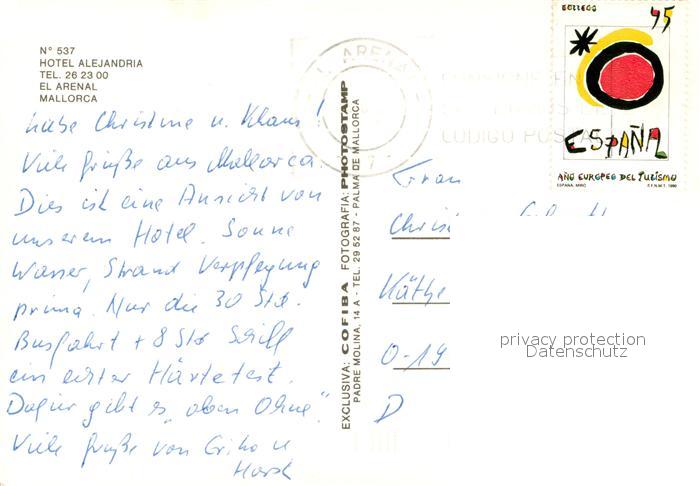 N° 537
HOTEL ALEJANDRIA
TEL. 26 23 00
EL ARENAL
MALLORCA
Liebe Christine u. Klaus!
Viele Grüße aus Mallorca.
Dies ist eine Ansicht von
unserem Hotel. Sonne
Wasser, Strand Verpflegung
prima. Nur die 30 Std.
Busfahrt + 8 Std Schiff
ein echter Härtetest.
Dafür gibt es "oben Ohne".
Viele Grüße von
Horst
EXCLUSIVA: COFIBA FOTOGRAFIA: PHOTOSTAMP
PADRE MOLINA, 14 A - TEL. 29 52 87 - PALMA DE MALLORCA
ARENAL
CODIGO POSTAL
CORREOS 45
ESPAÑA
AÑO EUROPEO DEL TURISMO
ESPAÑA. MIRO F.N.M.T. 1990
Frau
Chris
Käthe
O-19
D
privacy protection
Datenschutz